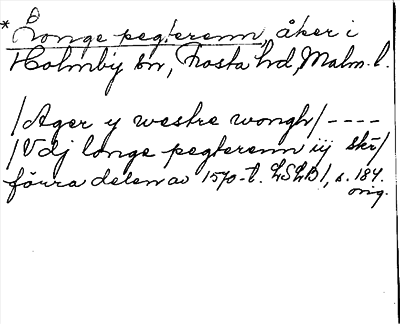 * Longe pegterenn, åker i
Holmby sn, Frosta hd, Malm. l.
/Ager y westre wongh/ ----
/Vdj longe pegterenn iij skr/
förra delen av 1570-t. LSLB1, s. 184.
orig.